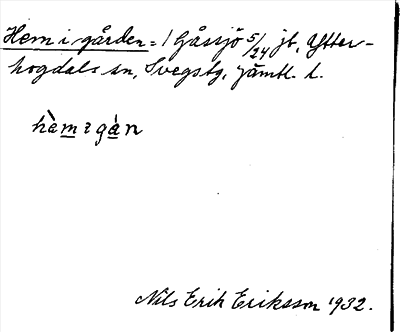 Hem i gården = 1 Gåssjö 5/24 jb, Ytter-
hogdals sn, Svegs tg, Jämtl. l.
Nils Erik Eriksson 1932.